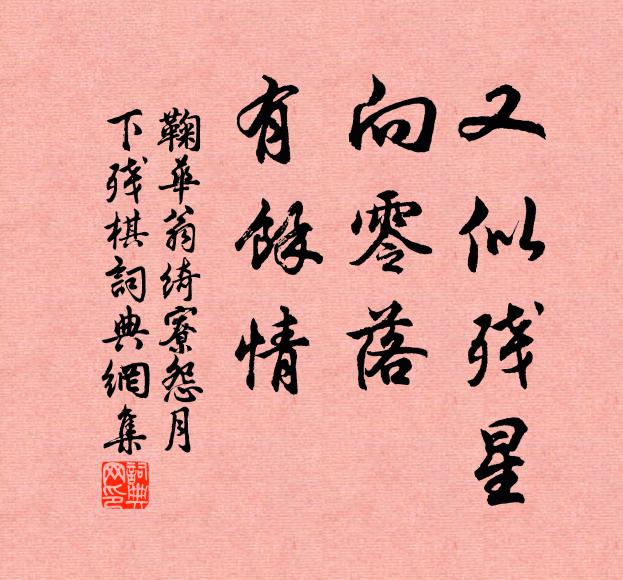 又似残星
向零落
有餘情
鞠華翁绮寮怨月
下残棋詞典網集
詞典
网印